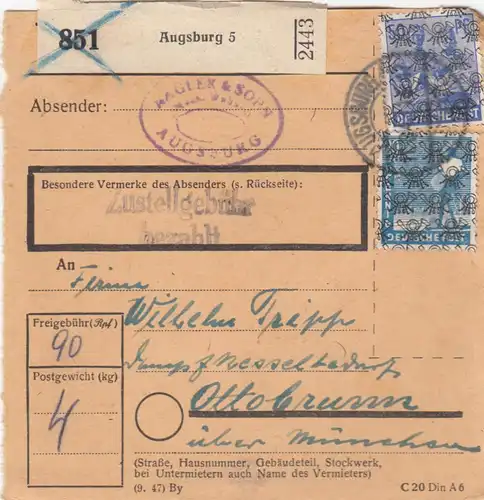 851
Augsburg 5
2443
Absender:
& SOHN
AUGSBURG
DEUTSCHE POST
Besondere Vermerke des Absenders (s. Rückseite):
Zustellgebühr
bezahlt
An
Firma
Wilhelm Tripp
Dampfkesselbedarf
Ottobrunn
über München
Freigebühr (Rpf)
90
Postgewicht (kg)
4
(Straße, Hausnummer, Gebäudeteil, Stockwerk,
bei Untermietern auch Name des Vermieters)
(9. 47) By
C 20 Din A 6